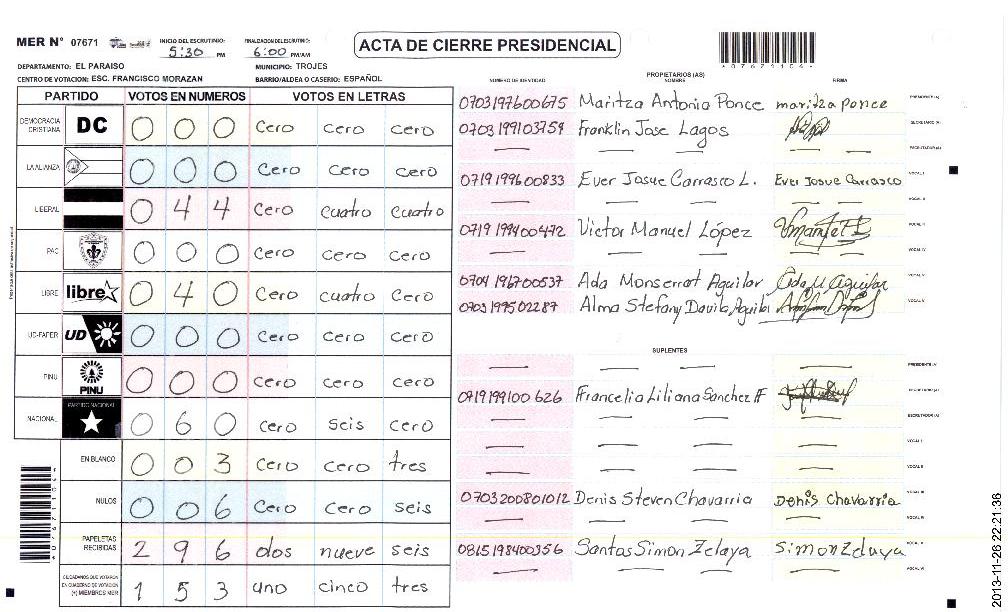 MER N° 07671 INICIO DEL ESCRUTINIO: 5:30 PM FINALIZACION DEL ESCRUTINIO: 6:00 PM/AM
ACTA DE CIERRE PRESIDENCIAL
*07671104*
DEPARTAMENTO: EL PARAISO MUNICIPIO: TROJES
CENTRO DE VOTACION: ESC. FRANCISCO MORAZAN BARRIO/ALDEA O CASERIO: ESPAÑOL
PARTIDO VOTOS EN NUMEROS VOTOS EN LETRAS
DEMOCRACIA CRISTIANA DC 0 0 0 Cero cero cero
LA ALIANZA 0 0 0 Cero Cero cero
LIBERAL 0 4 4 Cero cuatro cuatro
PAC 0 0 0 Cero cero cero
LIBRE libre 0 4 0 Cero cuatro Cero
UD-FAPER UD 0 0 0 Cero cero cero
PINU PINU 0 0 0 Cero cero cero
NACIONAL PARTIDO NACIONAL 0 6 0 cero seis cero
EN BLANCO 0 0 3 Cero cero tres
NULOS 0 0 6 Cero cero seis
PAPELETAS RECIBIDAS 2 9 6 dos nueve seis
CIUDADANOS QUE VOTARON EN CUADERNO DE VOTACION (+) MIEMBROS MER 1 5 3 uno cinco tres
PROPIETARIOS (AS)
NUMERO DE IDENTIDAD NOMBRE FIRMA
0703197600675 Maritza Antonia Ponce maritza ponce PRESIDENTE (A)
0703199103759 Franklin Jose Lagos SECRETARIO (A)
ESCRUTADOR (A)
0719199600833 Ever Josue Carrasco L. Ever Josue Carrasco VOCAL I
VOCAL II
0719199400472 Victor Manuel López VOCAL III
VOCAL IV
0704196700537 Ada Monserrat Aguilar Ada M Aguilar VOCAL V
0703199502287 Alma Stefany Davila Aguilar VOCAL VI
SUPLENTES
PRESIDENTE (A)
0719199100626 Francelia Liliana Sanchez F SECRETARIO (A)
ESCRUTADOR (A)
VOCAL I
VOCAL II
0703200801012 Denis Steven Chavarria Denis Chavarria VOCAL III
VOCAL IV
0815198400356 Santos Simon Zelaya Simon Zelaya VOCAL V
VOCAL VI
2013-11-26 22:21:36